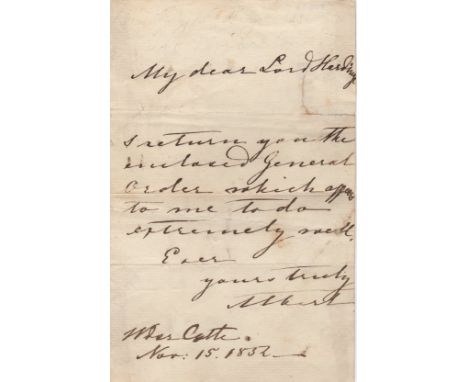 My dear Lord Hardinge
I return you the
enclosed General
Order which appears
to me to do
extremely well.
Ever
yours truly
Albert
Wdsor Castle.
Nov: 15. 1852